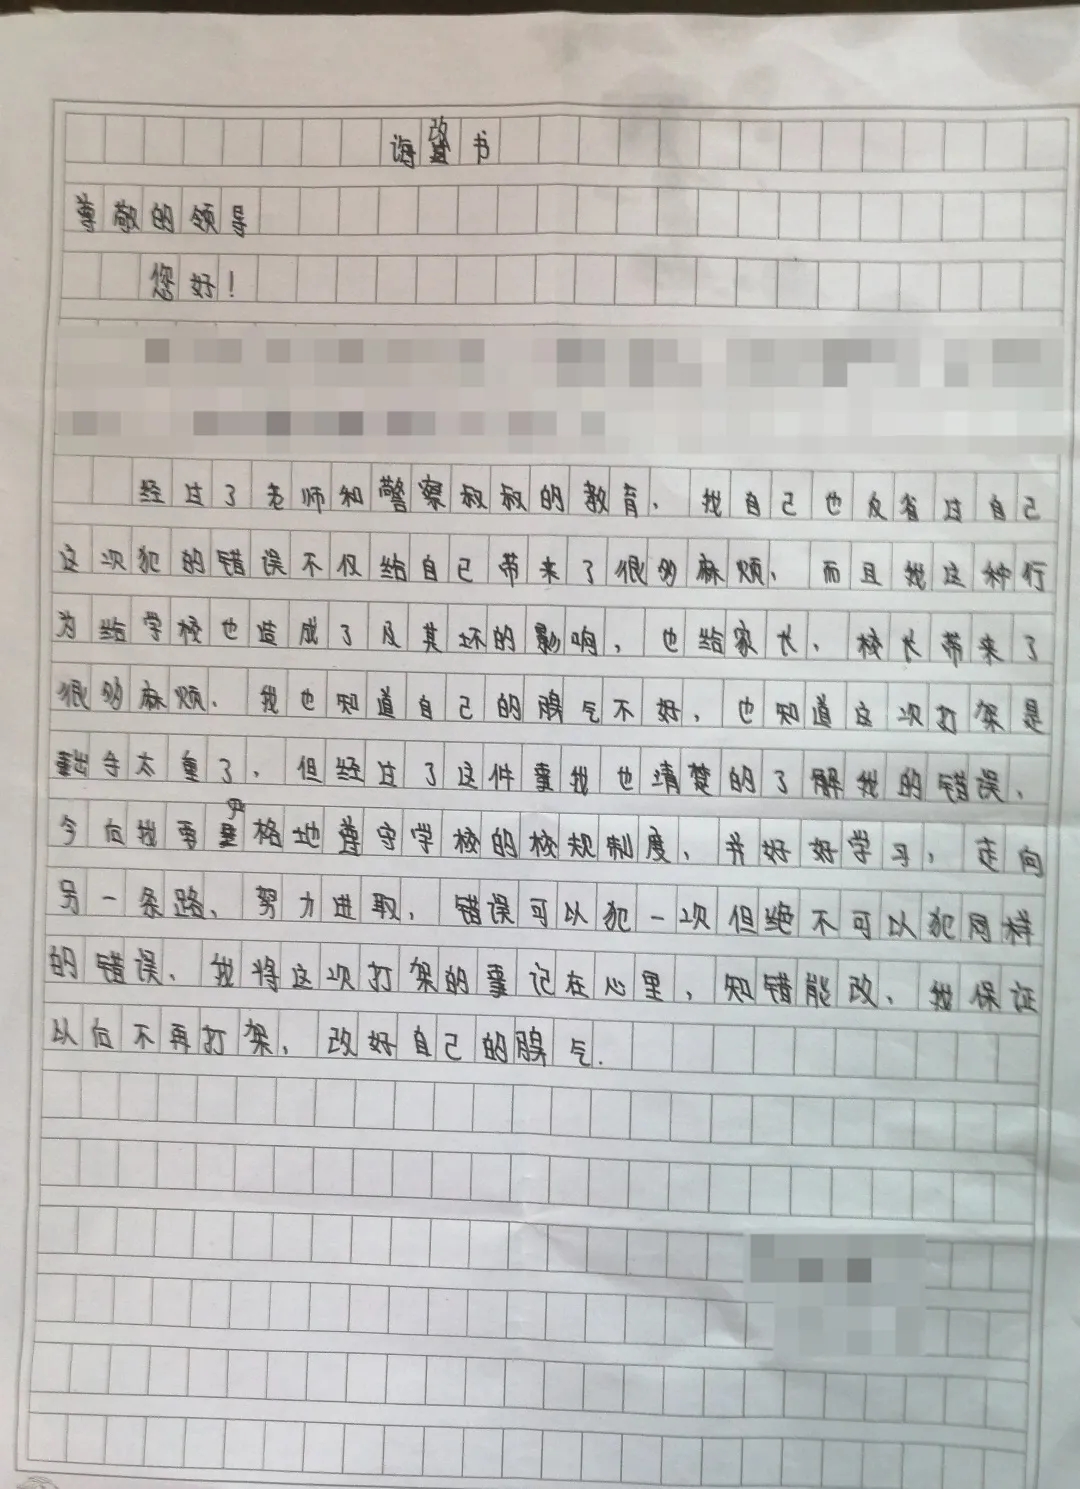 悔改书
尊敬的领导
您好！
经过了老师和警察叔叔的教育，我自己也反省过自己
这次犯的错误不仅给自己带来了很多麻烦，而且我这种行
为给学校也造成了及其坏的影响，也给家长、校长带来了
很多麻烦，我也知道自己的脾气不好，也知道这次打架是
出手太重了，但经过了这件事我也清楚的了解我的错误，
今后我要严格地尊守学校的校规制度，并好好学习，走向
另一条路、努力进取，错误可以犯一次但绝不可以犯同样
的错误，我将这次打架的事记在心里，知错能改，我保证
以后不再打架，改好自己的脾气.